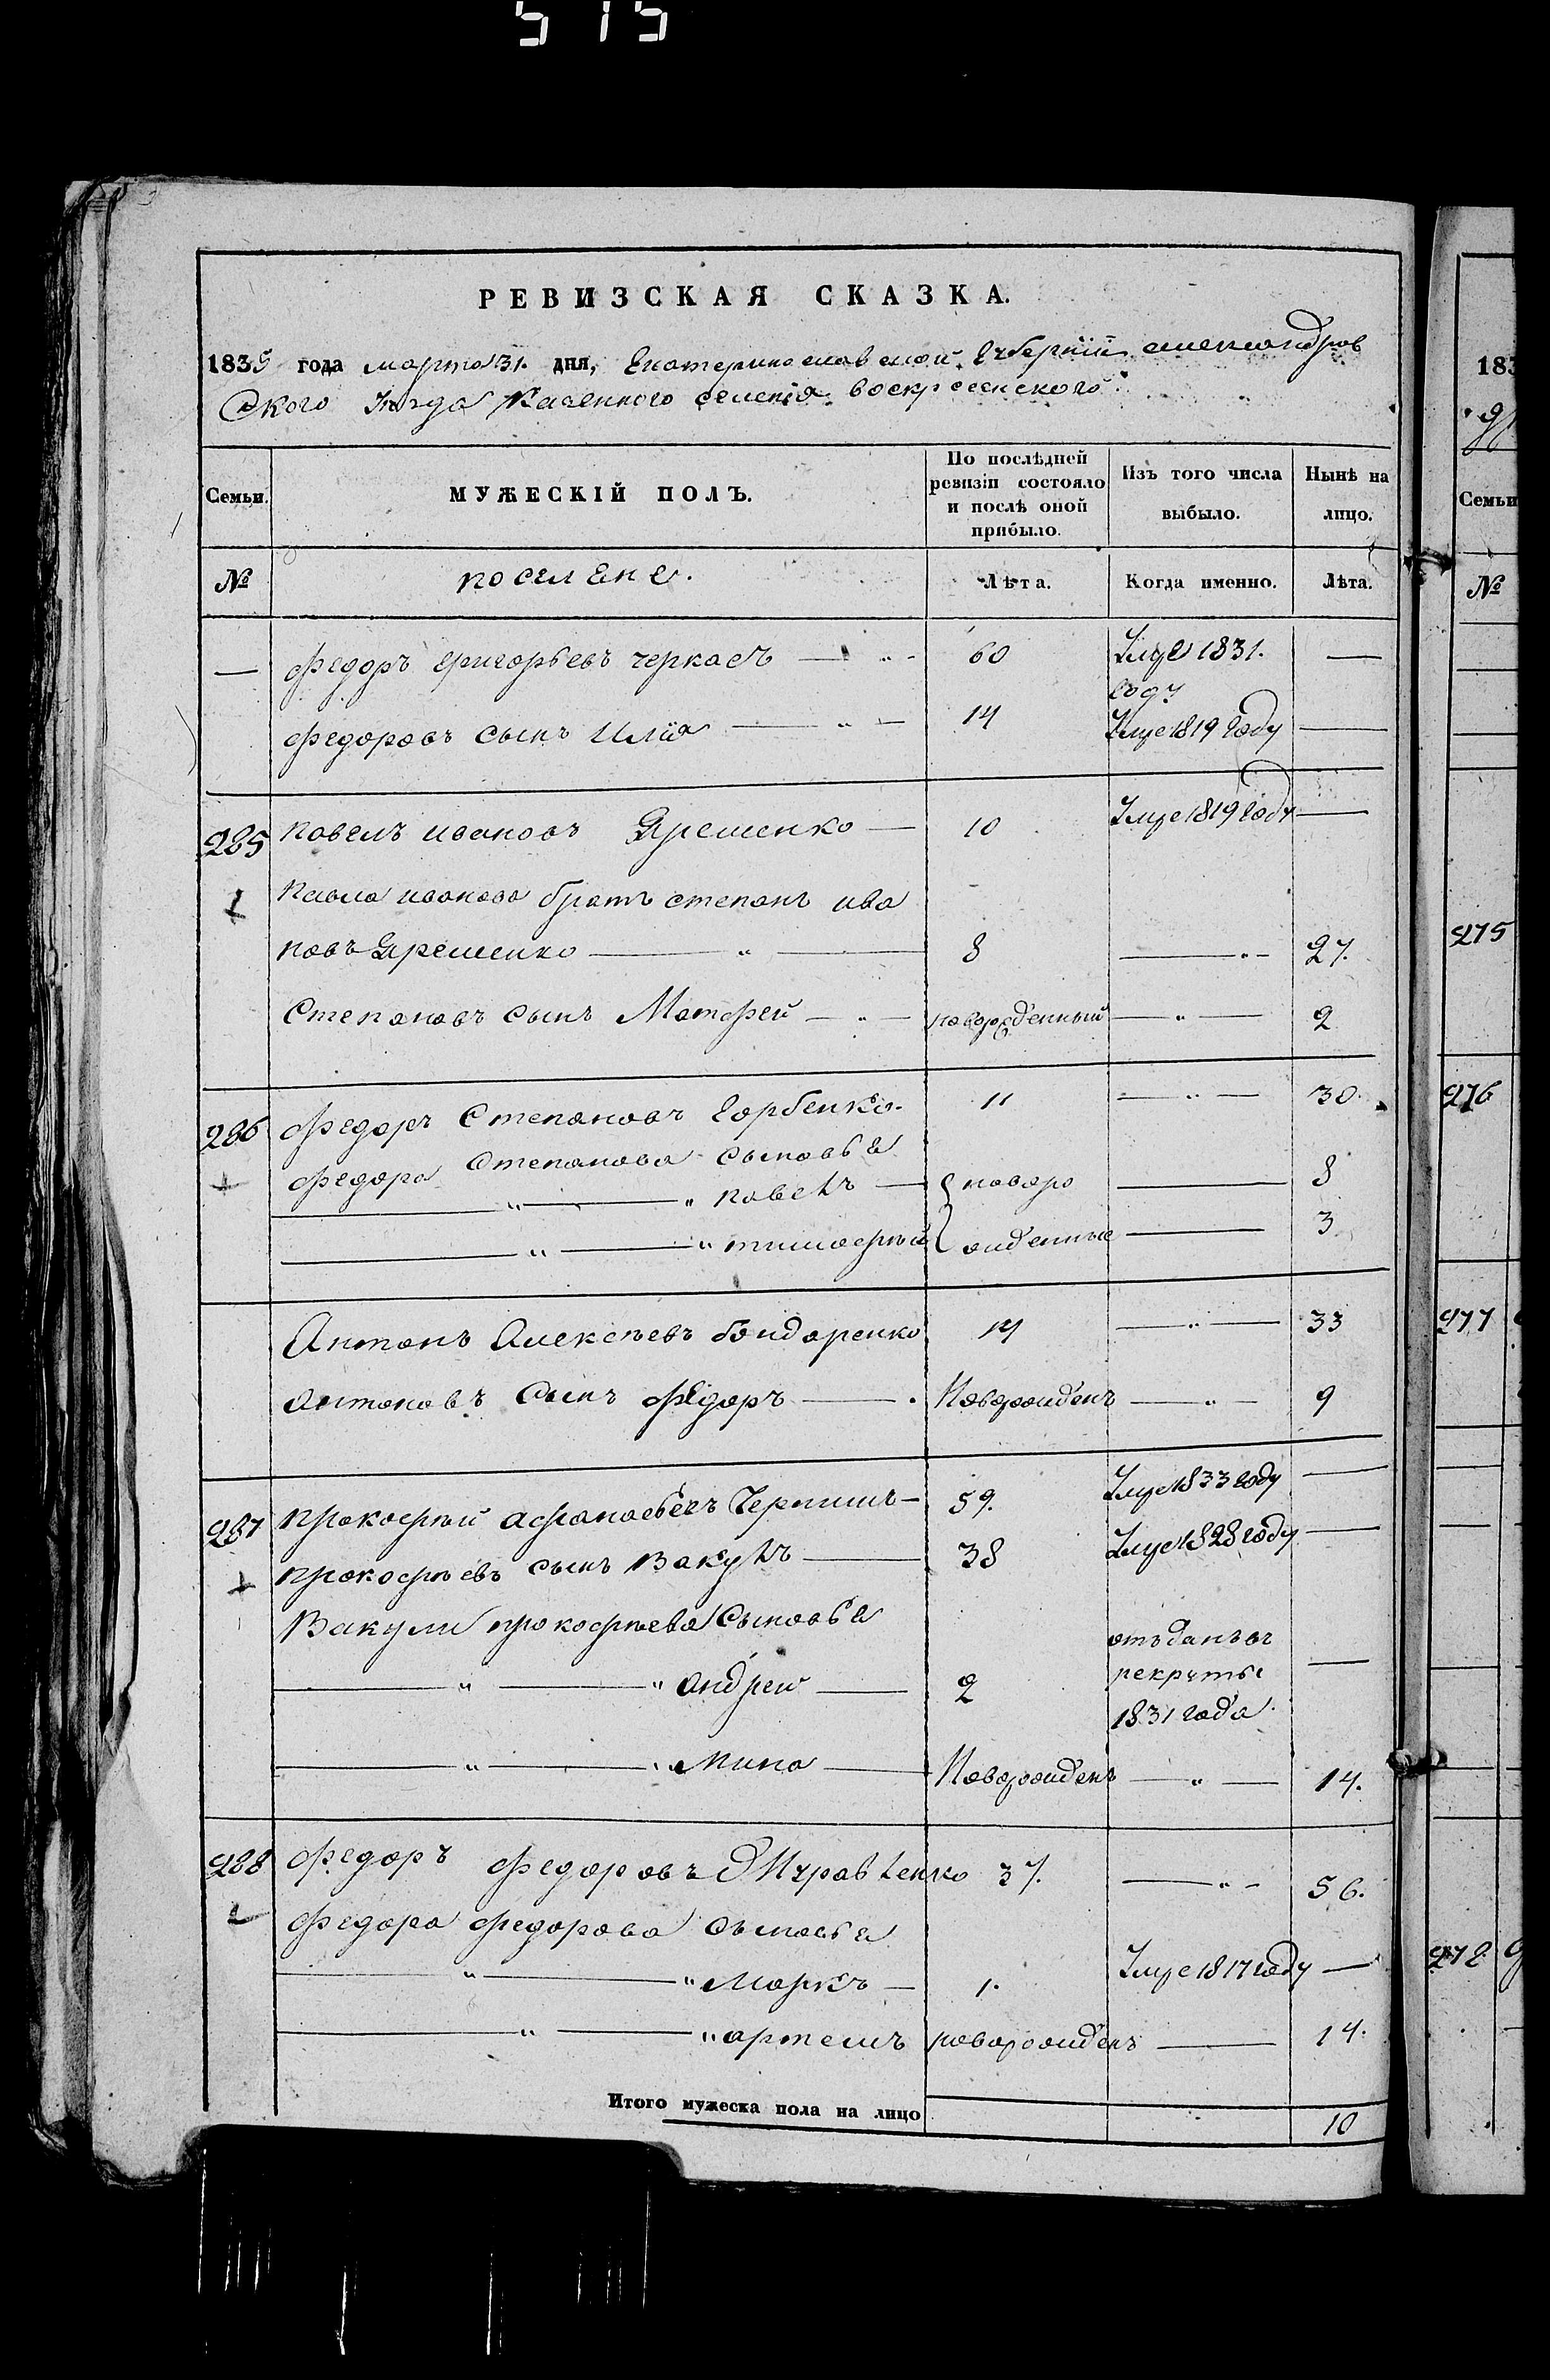 515
РЕВИЗСКАЯ СКАЗКА.
1835 года марта 31. дня, Екатеринославской Губерніи Александров
ского уезда Казенного селенія воскресенского
Семьи. МУЖЕСКІЙ ПОЛЪ. По послѣдней ревизіи состояло и послѣ оной прибыло. Изъ того числа выбыло. Нынѣ на лицо.
№ поселене. Лѣта. Когда именно. Лѣта.
— федоръ григорьевъ черкасъ — 60 Умре 1831. году —
федоровъ сынъ Илiя — 14 Умре 1819 году —
285 павелъ ивановъ Яременко — 10 Умре 1819 году —
павла иванова братъ степанъ ива
новъ Яременко — " — 8 — " — 27.
Степановъ сынъ Матфей — " — новорожденный — " — 2
286 федоръ Степановъ Горбенко. 11 — " — 30.
федора Степанова сыновья
" — " павелъ — { новоро — 8
" — " тимофѣй { жденные — 3
Антонъ Алексѣевъ бондаренко 14 — " — 33
антоновъ Сынъ федоръ — Новорожденъ — " — 9
287 прокофѣй афанасьевъ — 59. Умре 1833 году —
прокофѣевъ сынъ Вакулъ — 38 Умре 1828 году —
Вакулы прокофѣева Сыновья
— " — " андрей — 2 отъданъ въ рекруты 1831 года —
— " — " мина — Новорожденъ — " — 14.
288 федоръ федоровъ Журавленко 37. — " — 56.
федора федорова сыновья
— " — " Маркъ — 1. Умре 1817 году —
— " — " артемъ новорожденъ — 14.
Итого мужеска пола на лицо 10
183
Семьи
№
275
276
277
278